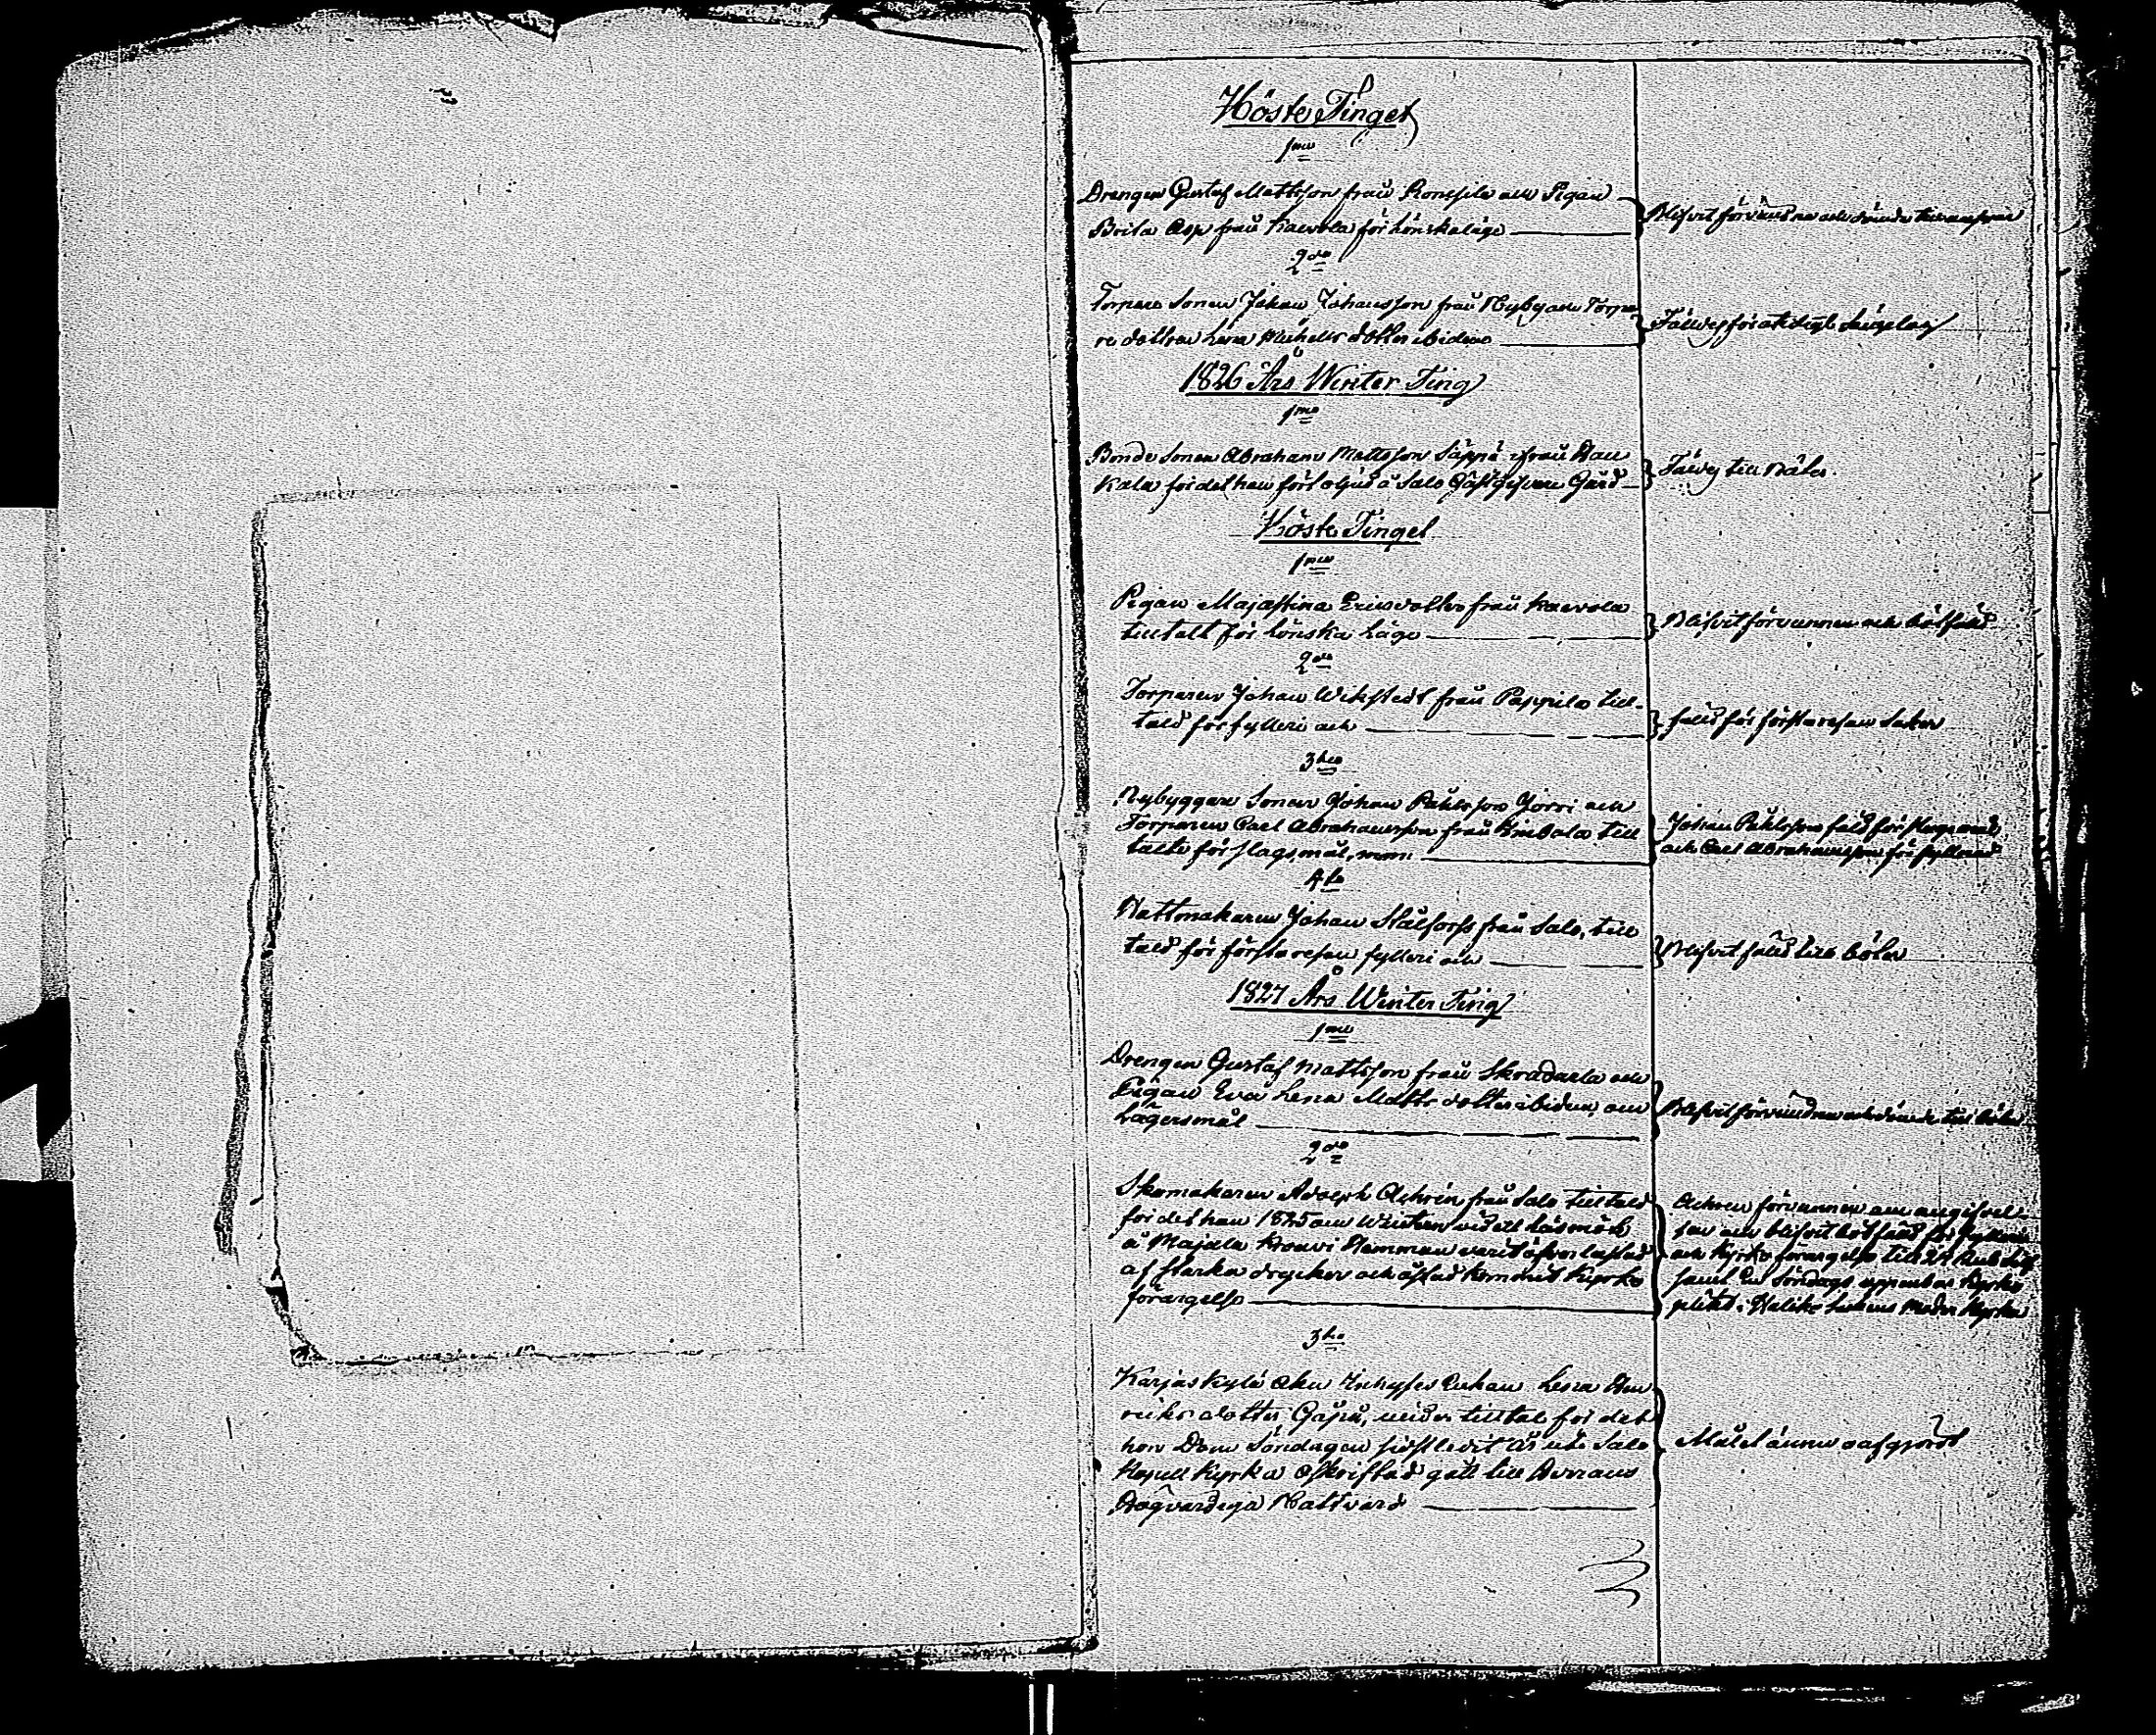 Höste Tinget
1mo
Drengen Gustaf Mattsson från och Pigan
Brita Asp från Kaevola för Lönskaläge
Blifvit förvunne och dömde
2do
Torpare Sonen Johan Johansson från Nyby och Torpa
re dottren Lena Michels dotter ibidem
Fälld för otidigt Sängelag
1826 Års Winter Ting
1mo
Bonde Sonen Abraham Mattsson Säppä från Hau
kala för det han försoljud å Salo Gästgifvare Gård
Fälld till Böter.
Höste Tinget
1mo
Pigan Majastina Ericsdotter från Kaevola
tilltalt för Lönska Läge
Blifvit förvunnen och botfäld
2do
Torparen Johan Wikstedt från Pappila till-
tald för fylleri och
fälld för första resan Saken
3tio
Nybyggare Sonen Johan Påhlsson Jorri och
Torparen Carl Abrahamsson från till
talte för slagsmål, m m:
Johan Påhlsson fäld för slagsmål
och Carl Abrahamsson för fylleri
4to
Hattmakaren Johan Stålfors från Salo, till
tald för första resan fylleri och
Blifvit fälld till böter
1827 Års Winter Ting
1mo
Drengen Gustaf Mattsson från Skradarla och
Pigan Eva Lena Matts dotter ibidem om
Lägersmål
Blifvit förvundne och dömde till böter
2do
Skomakaren Adolph Achrén från Salo tilltald
för det han 1825 om Wintren vid ett Läsmöte
å Majala Krouvi Hemman varit öfverlastad
af starka drycker och åstad kommit Kyrko
förargelse
Achren förvunnen om angifvel
sen och blifvit botfäld för fylleri
och Kyrko förargelse till Rub
samt En Söndags uppenbar Kyrko
plikt i Haliko Sockens Moder Kyrka
3tio
Karjaskylä Enkan Lena Hen
riks dotter för det
hon Dom Söndagen sistledit År uti Salo
Kapell Kyrka oskriftad gått till Herrans
Högvärdiga Nattvard
Målet ännu oafgjordt